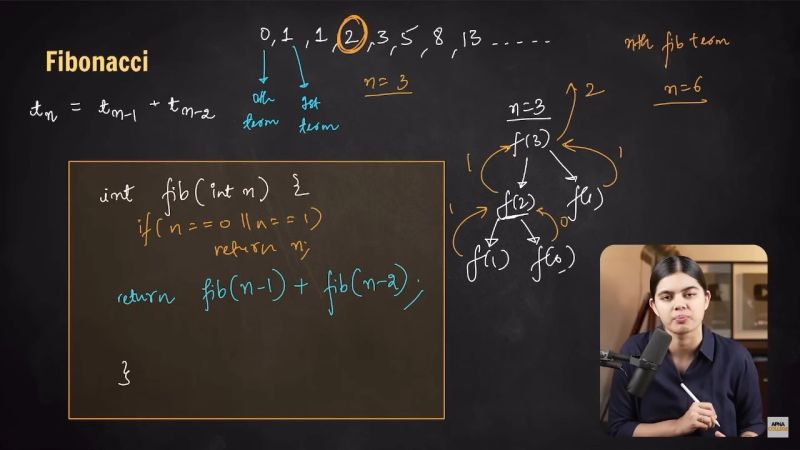 0, 1, 1, 2, 3, 5, 8, 13 -----
nth fib term
Fibonacci
n=3
n=6
tn = tn-1 + tn-2
0th term
1st term
n=3
2
f(3)
1
1
int fib(int n) {
if(n==0 || n==1)
return n;
f(2)
f(1)
1
0
f(1)
f(0)
return fib(n-1) + fib(n-2);
}
APNA
COLLEGE